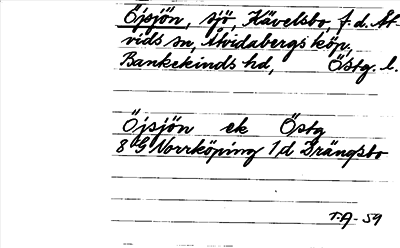 Öjsjön, sjö, Kävelsbo, f.d. Åt-
vids sn, Åtvidabergs köp,
Bankekinds hd, Östg. l.
Öjsjön ek Östg
8 G Norrköping 1 d Drängsbo
T.A-59